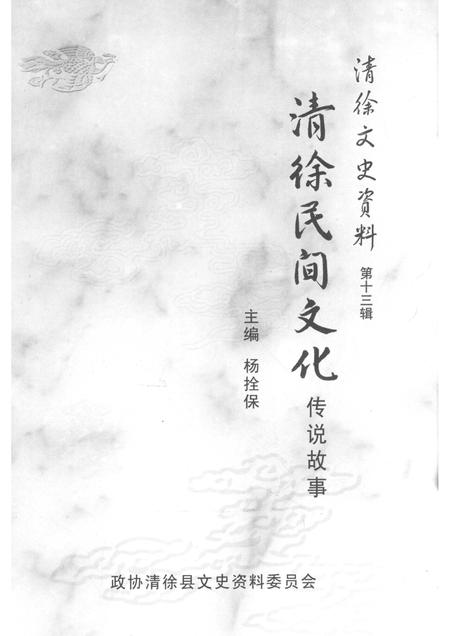 清徐文史資料
第十三辑
清徐民间文化
传说故事
主编 杨拴保
政协清徐县文史资料委员会